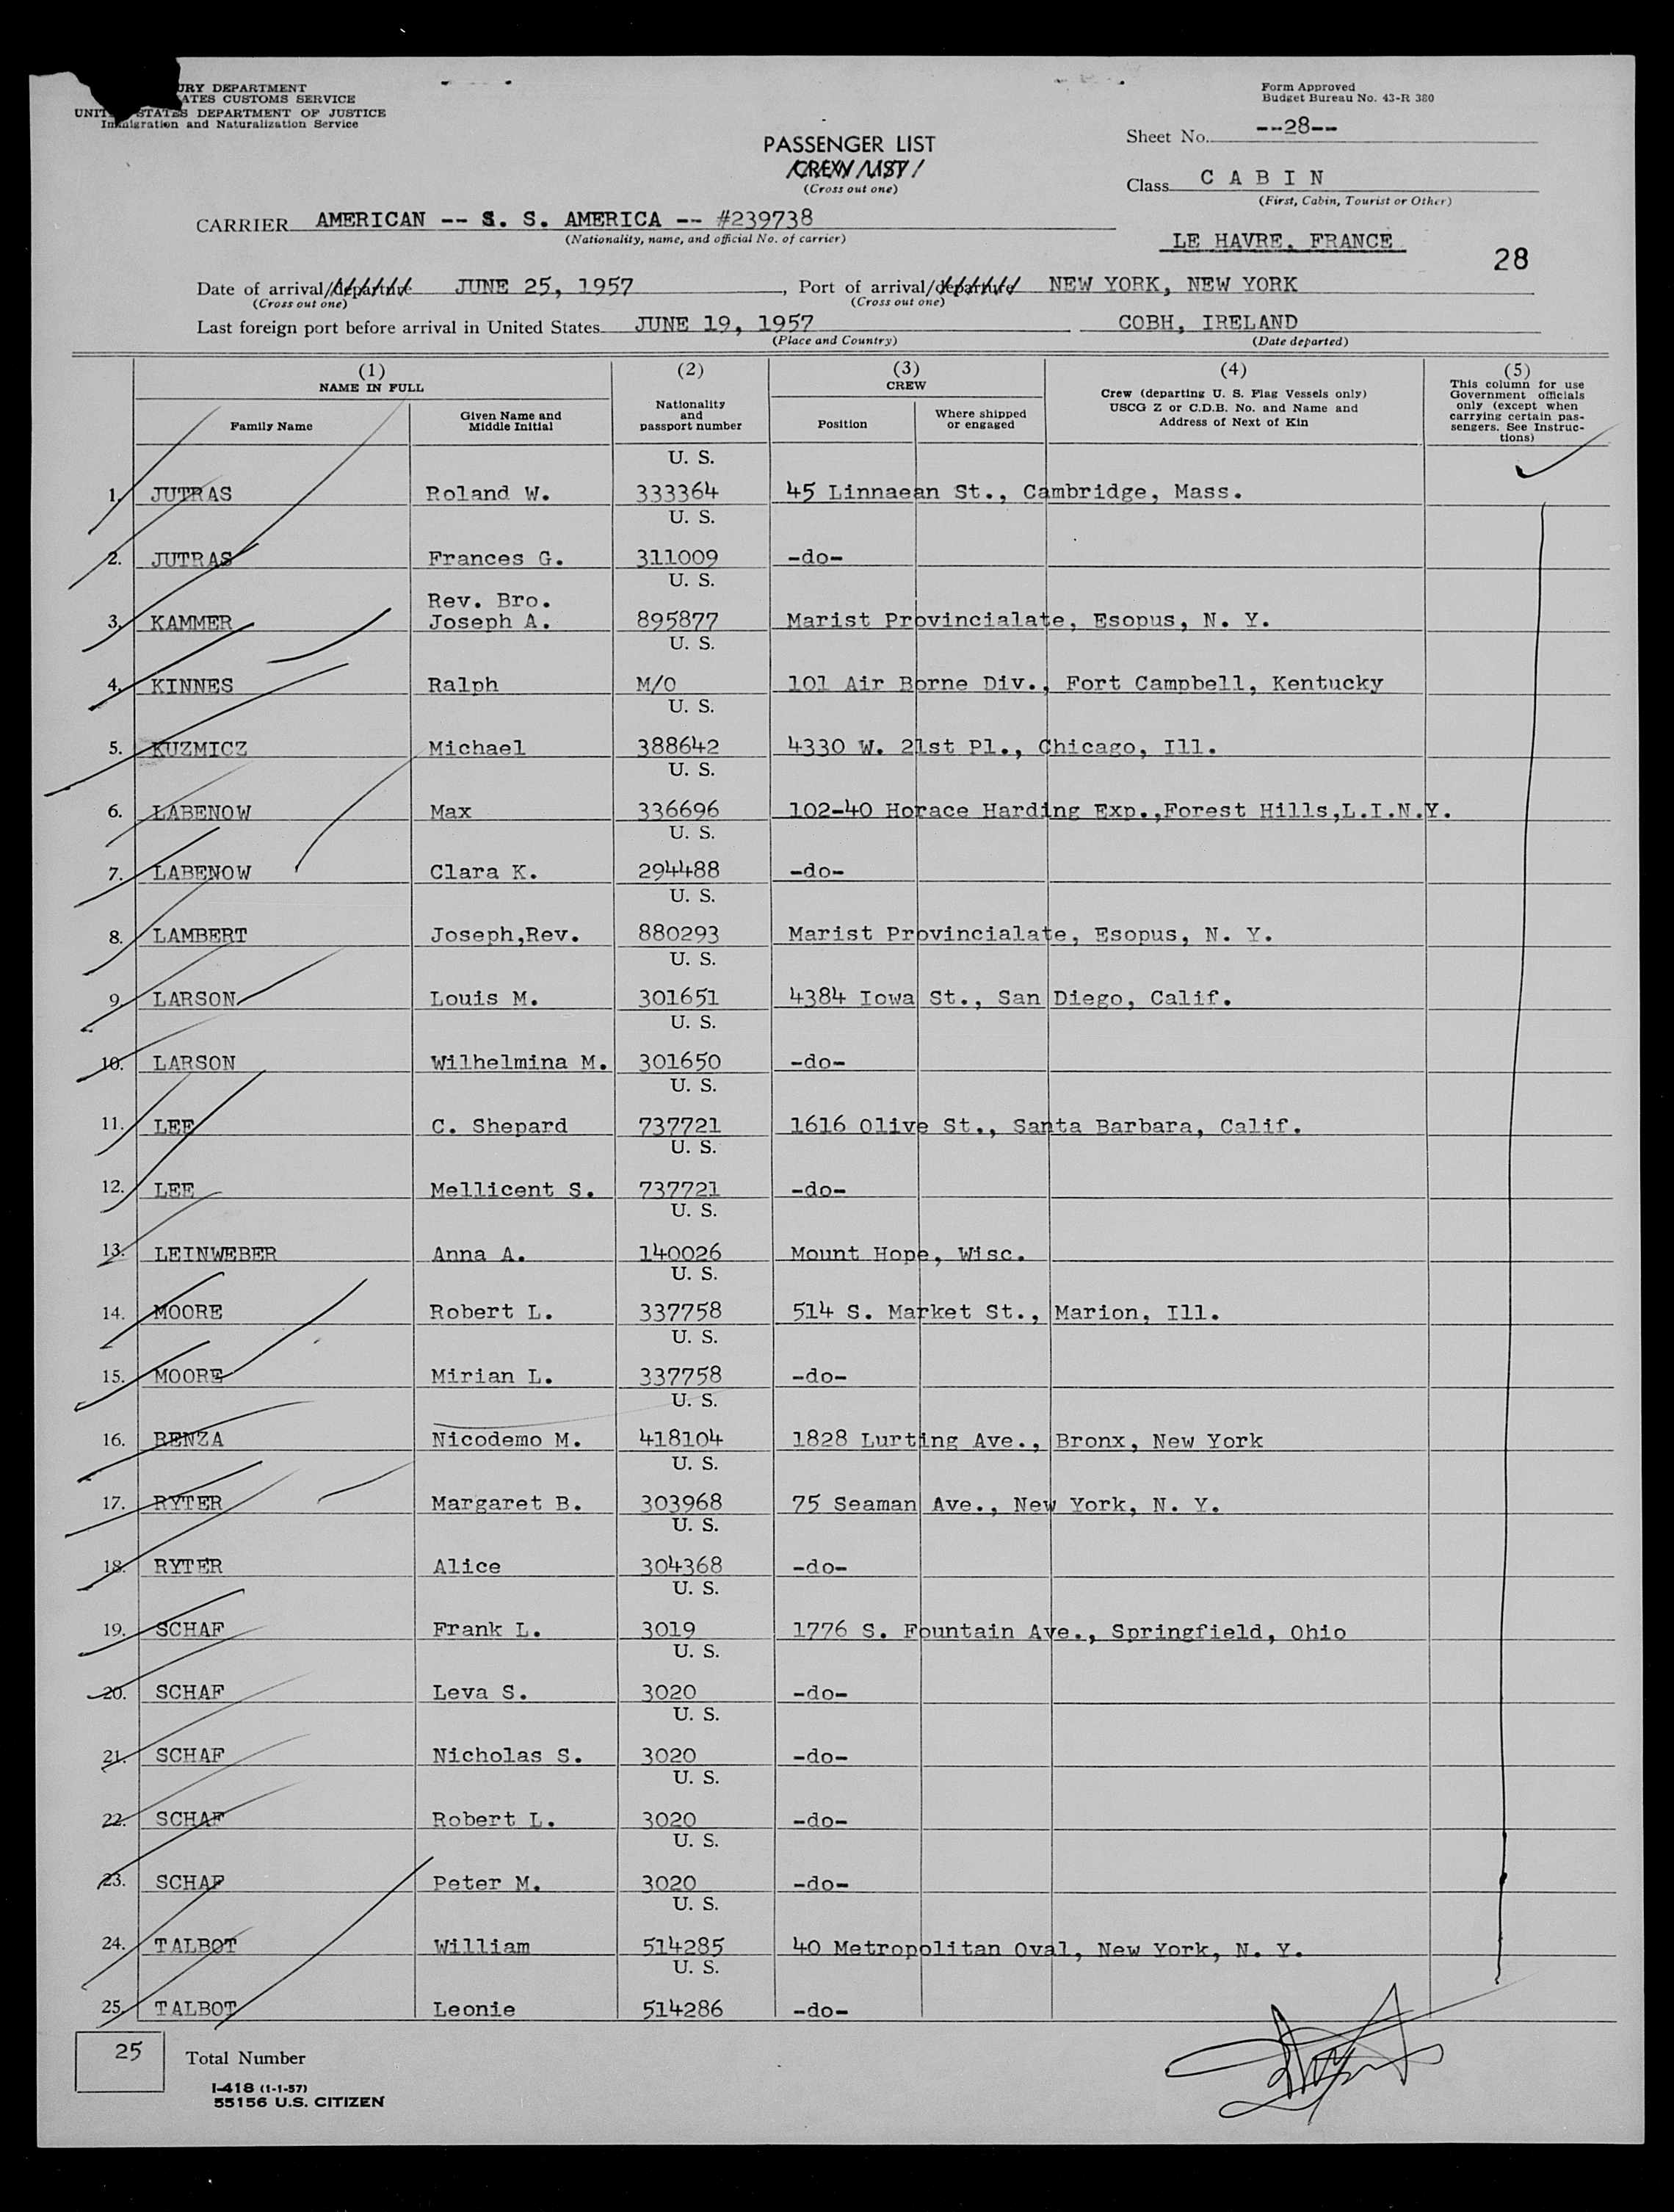 URY DEPARTMENT
ATES CUSTOMS SERVICE
UNITED STATES DEPARTMENT OF JUSTICE
Immigration and Naturalization Service
Form Approved
Budget Bureau No. 43-R 380
PASSENGER LIST
CREW LIST
(Cross out one)
Sheet No. --28--
Class C A B I N
(First, Cabin, Tourist or Other)
CARRIER AMERICAN -- S. S. AMERICA -- #239738
(Nationality, name, and official No. of carrier)
LE HAVRE, FRANCE
28
Date of arrival/departure JUNE 25, 1957, Port of arrival/departure NEW YORK, NEW YORK
(Cross out one) (Cross out one)
Last foreign port before arrival in United States JUNE 19, 1957 COBH, IRELAND
(Place and Country) (Date departed)
(1) (2) (3) (4) (5)
NAME IN FULL
Family Name
Given Name and
Middle Initial
Nationality
and
passport number
CREW
Position
Where shipped
or engaged
Crew (departing U. S. Flag Vessels only)
USCG Z or C.D.B. No. and Name and
Address of Next of Kin
This column for use
Government officials
only (except when
carrying certain pas-
sengers. See Instruc-
tions)
U. S.
1. JUTRAS Roland W. 333364 45 Linnaean St., Cambridge, Mass.
U. S.
2. JUTRAS Frances G. 311009 -do-
U. S.
Rev. Bro.
3. KAMMER Joseph A. 895877 Marist Provincialate, Esopus, N. Y.
U. S.
4. KINNES Ralph M/O 101 Air Borne Div., Fort Campbell, Kentucky
U. S.
5. KUZMICZ Michael 388642 4330 W. 21st Pl., Chicago, Ill.
U. S.
6. LABENOW Max 336696 102-40 Horace Harding Exp.,Forest Hills,L.I.N.Y.
U. S.
7. LABENOW Clara K. 294488 -do-
U. S.
8. LAMBERT Joseph,Rev. 880293 Marist Provincialate, Esopus, N. Y.
U. S.
9. LARSON Louis M. 301651 4384 Iowa St., San Diego, Calif.
U. S.
10. LARSON Wilhelmina M. 301650 -do-
U. S.
11. LEE C. Shepard 737721 1616 Olive St., Santa Barbara, Calif.
U. S.
12. LEE Mellicent S. 737721 -do-
U. S.
13. LEINWEBER Anna A. 140026 Mount Hope, Wisc.
U. S.
14. MOORE Robert L. 337758 514 S. Market St., Marion, Ill.
U. S.
15. MOORE Mirian L. 337758 -do-
U. S.
16. RENZA Nicodemo M. 418104 1828 Lurting Ave., Bronx, New York
U. S.
17. RYTER Margaret B. 303968 75 Seaman Ave., New York, N. Y.
U. S.
18. RYTER Alice 304368 -do-
U. S.
19. SCHAF Frank L. 3019 1776 S. Fountain Ave., Springfield, Ohio
U. S.
20. SCHAF Leva S. 3020 -do-
U. S.
21. SCHAF Nicholas S. 3020 -do-
U. S.
22. SCHAF Robert L. 3020 -do-
U. S.
23. SCHAF Peter M. 3020 -do-
U. S.
24. TALBOT William 514285 40 Metropolitan Oval, New York, N. Y.
U. S.
25. TALBOT Leonie 514286 -do-
25 Total Number
I-418 (1-1-57)
55156 U.S. CITIZEN